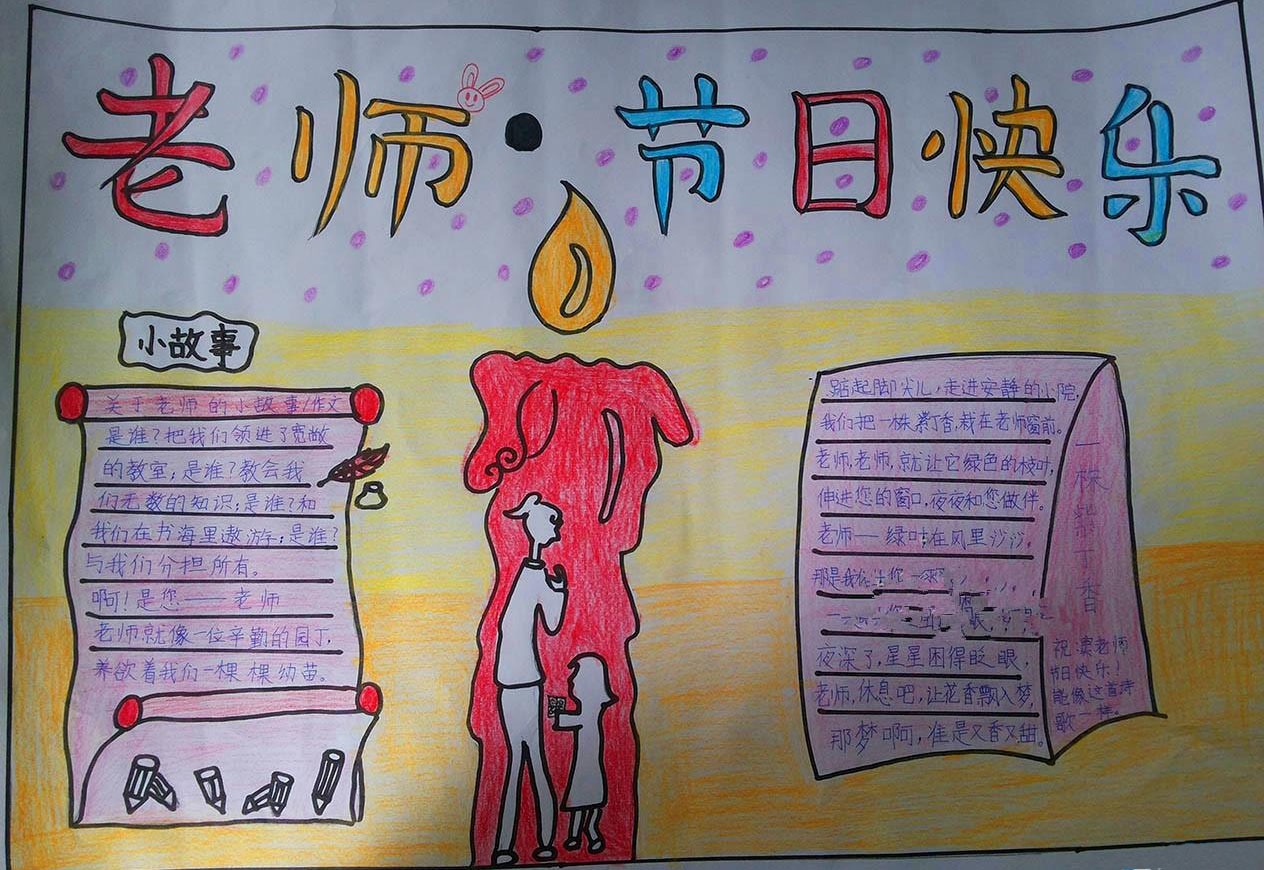 老师·节日快乐
小故事
关于老师的小故事/作文
是谁?把我们领进了宽敞
的教室;是谁?教会我
们无数的知识;是谁?和
我们在书海里遨游;是谁?
与我们分担所有。
啊!是您——老师
老师就像一位辛勤的园丁,
养欲着我们一棵棵幼苗。
踮起脚尖儿,走进安静的小院,
我们把一株紫丁香,栽在老师窗前。
老师,老师,就让它绿色的枝叶,
伸进您的窗口,夜夜和您做伴。
老师——绿叶在风里沙沙,
那是我们
夜深了,星星困得眨眼,
老师,休息吧,让花香飘入梦,
那梦啊,准是又香又甜。
一株紫丁香
祝滨老师
节日快乐!
能像这首诗
歌一样。